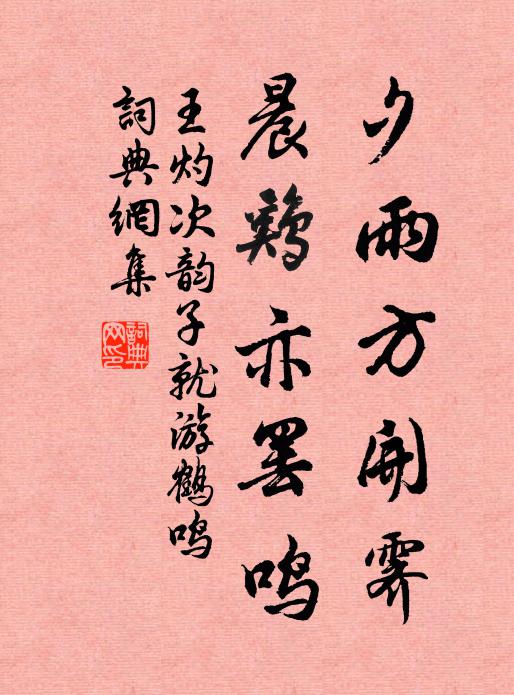 夕雨方開霽
晨鷄亦罢鸣
王灼次韵子就游鹤鸣
詞典網集
詞典网印